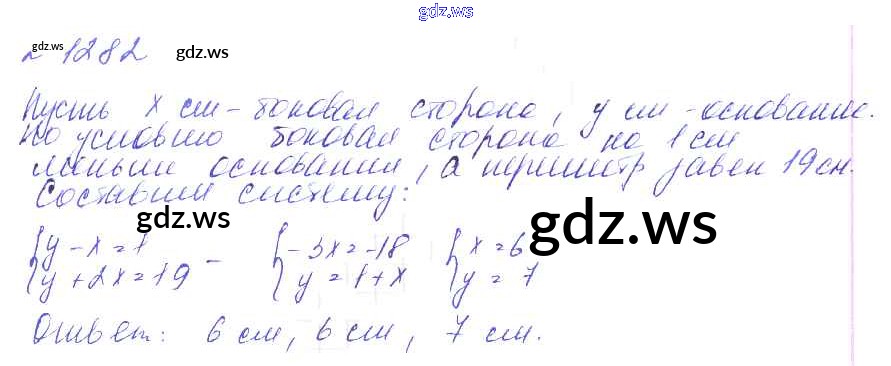 gdz.ws
№ 1282
gdz.ws gdz.ws
Пусть x см - боковая сторона, y см - основание.
По условию боковая сторона на 1 см
меньше основания, а периметр равен 19 см.
Составим систему:
gdz.ws gdz.ws
{y - x = 1 - {-3x = -18 {x = 6
{y + 2x = 19 {y = 1 + x {y = 7
Ответ: 6 см, 6 см, 7 см.